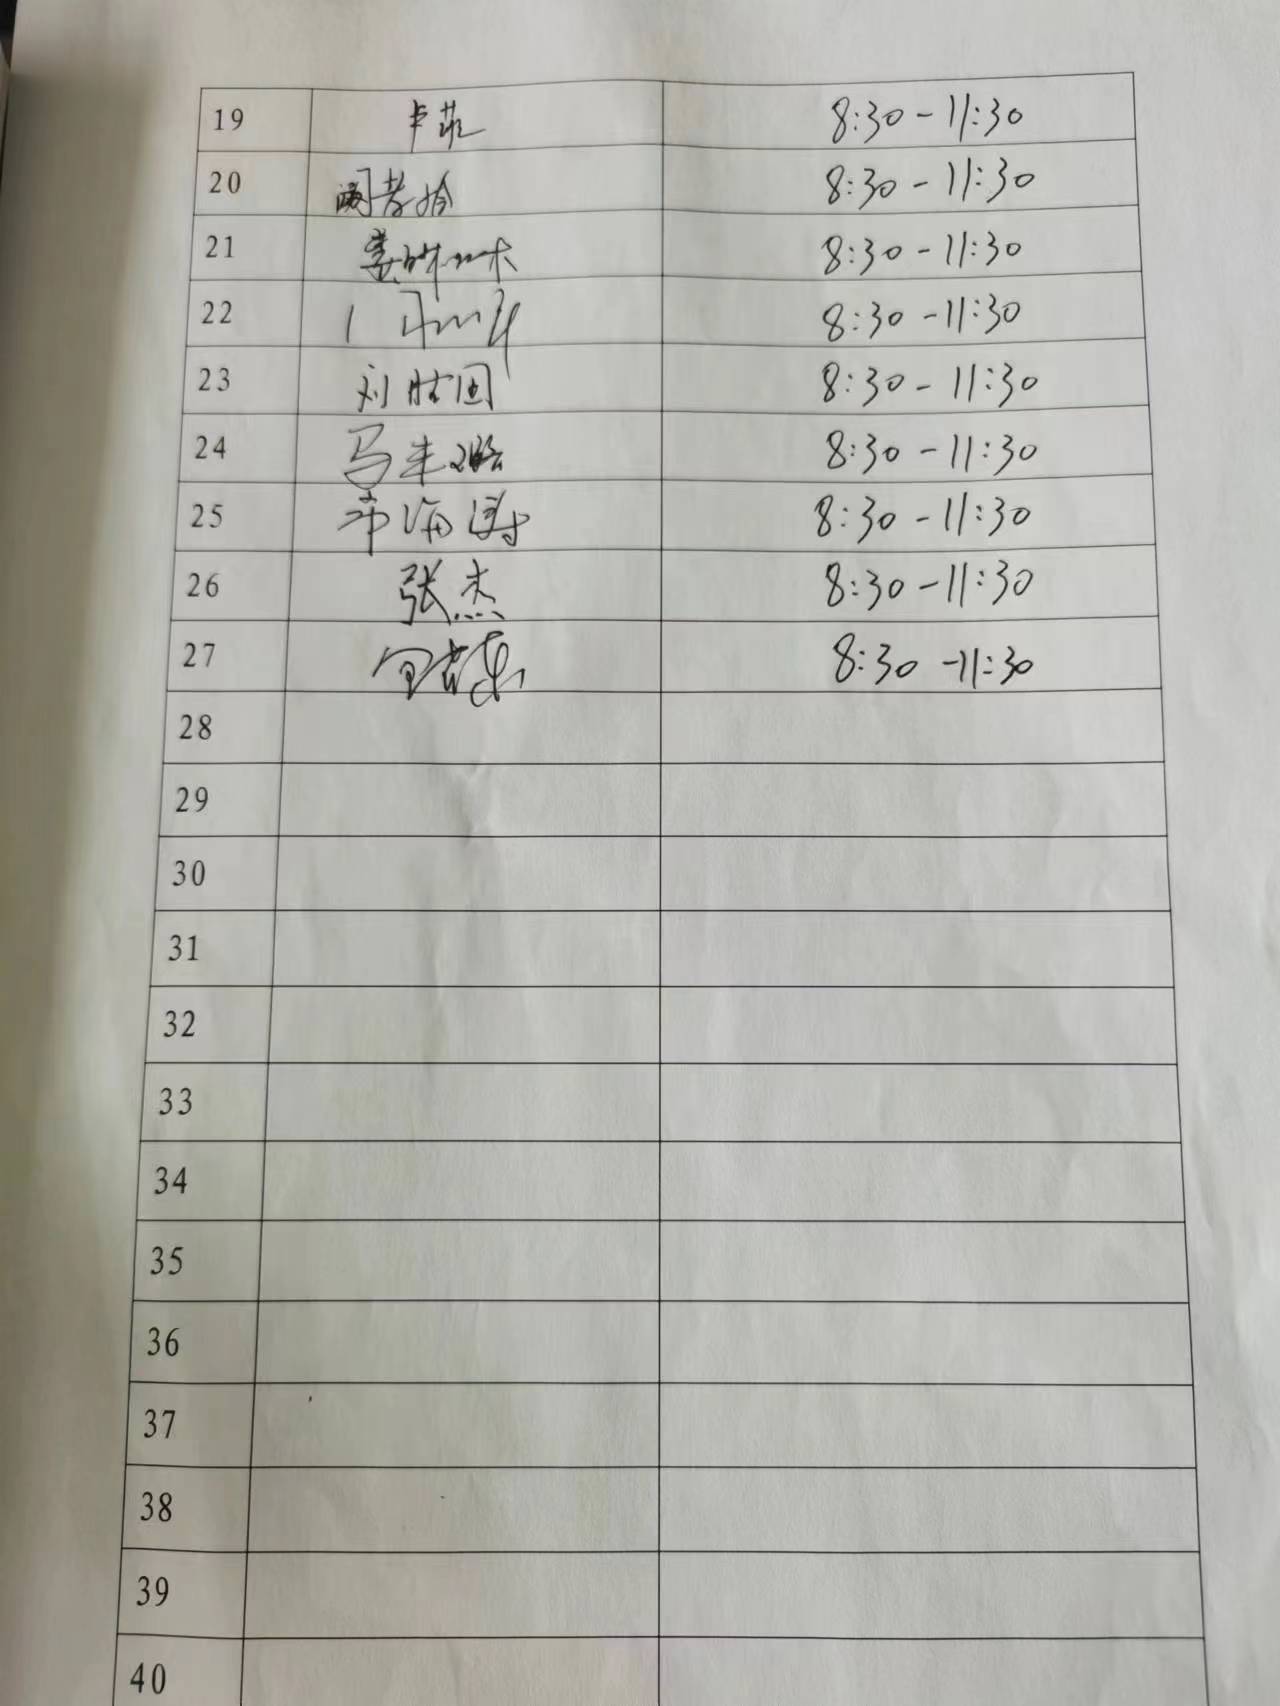 19 卢菲 8:30-11:30
20 8:30-11:30
21 8:30-11:30
22 8:30-11:30
23 刘胜国 8:30-11:30
24 马丰璐 8:30-11:30
25 8:30-11:30
26 张杰 8:30-11:30
27 8:30-11:30
28
29
30
31
32
33
34
35
36
37
38
39
40